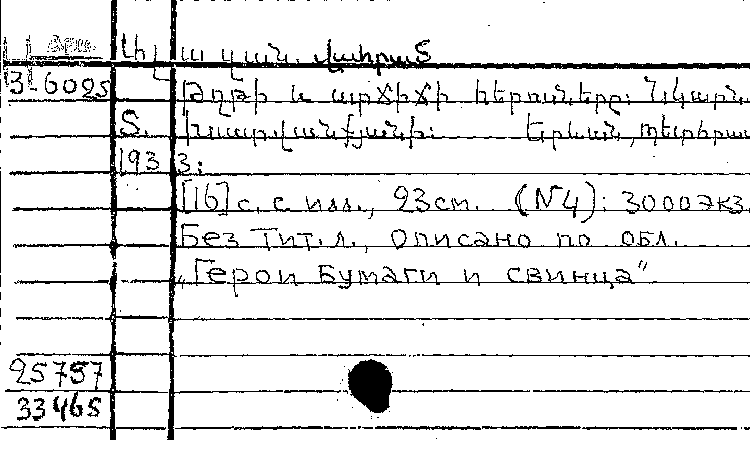 Յրա.
3-6025 Թղթի և արճիճի հերոսները: Նկարն.
Տ. Երևան, պետհրատ
1933:
[16] с. с илл., 23см. (N4): 3000экз.
Без тит. л., описано по обл.
„Герои бумаги и свинца"
25757
33465